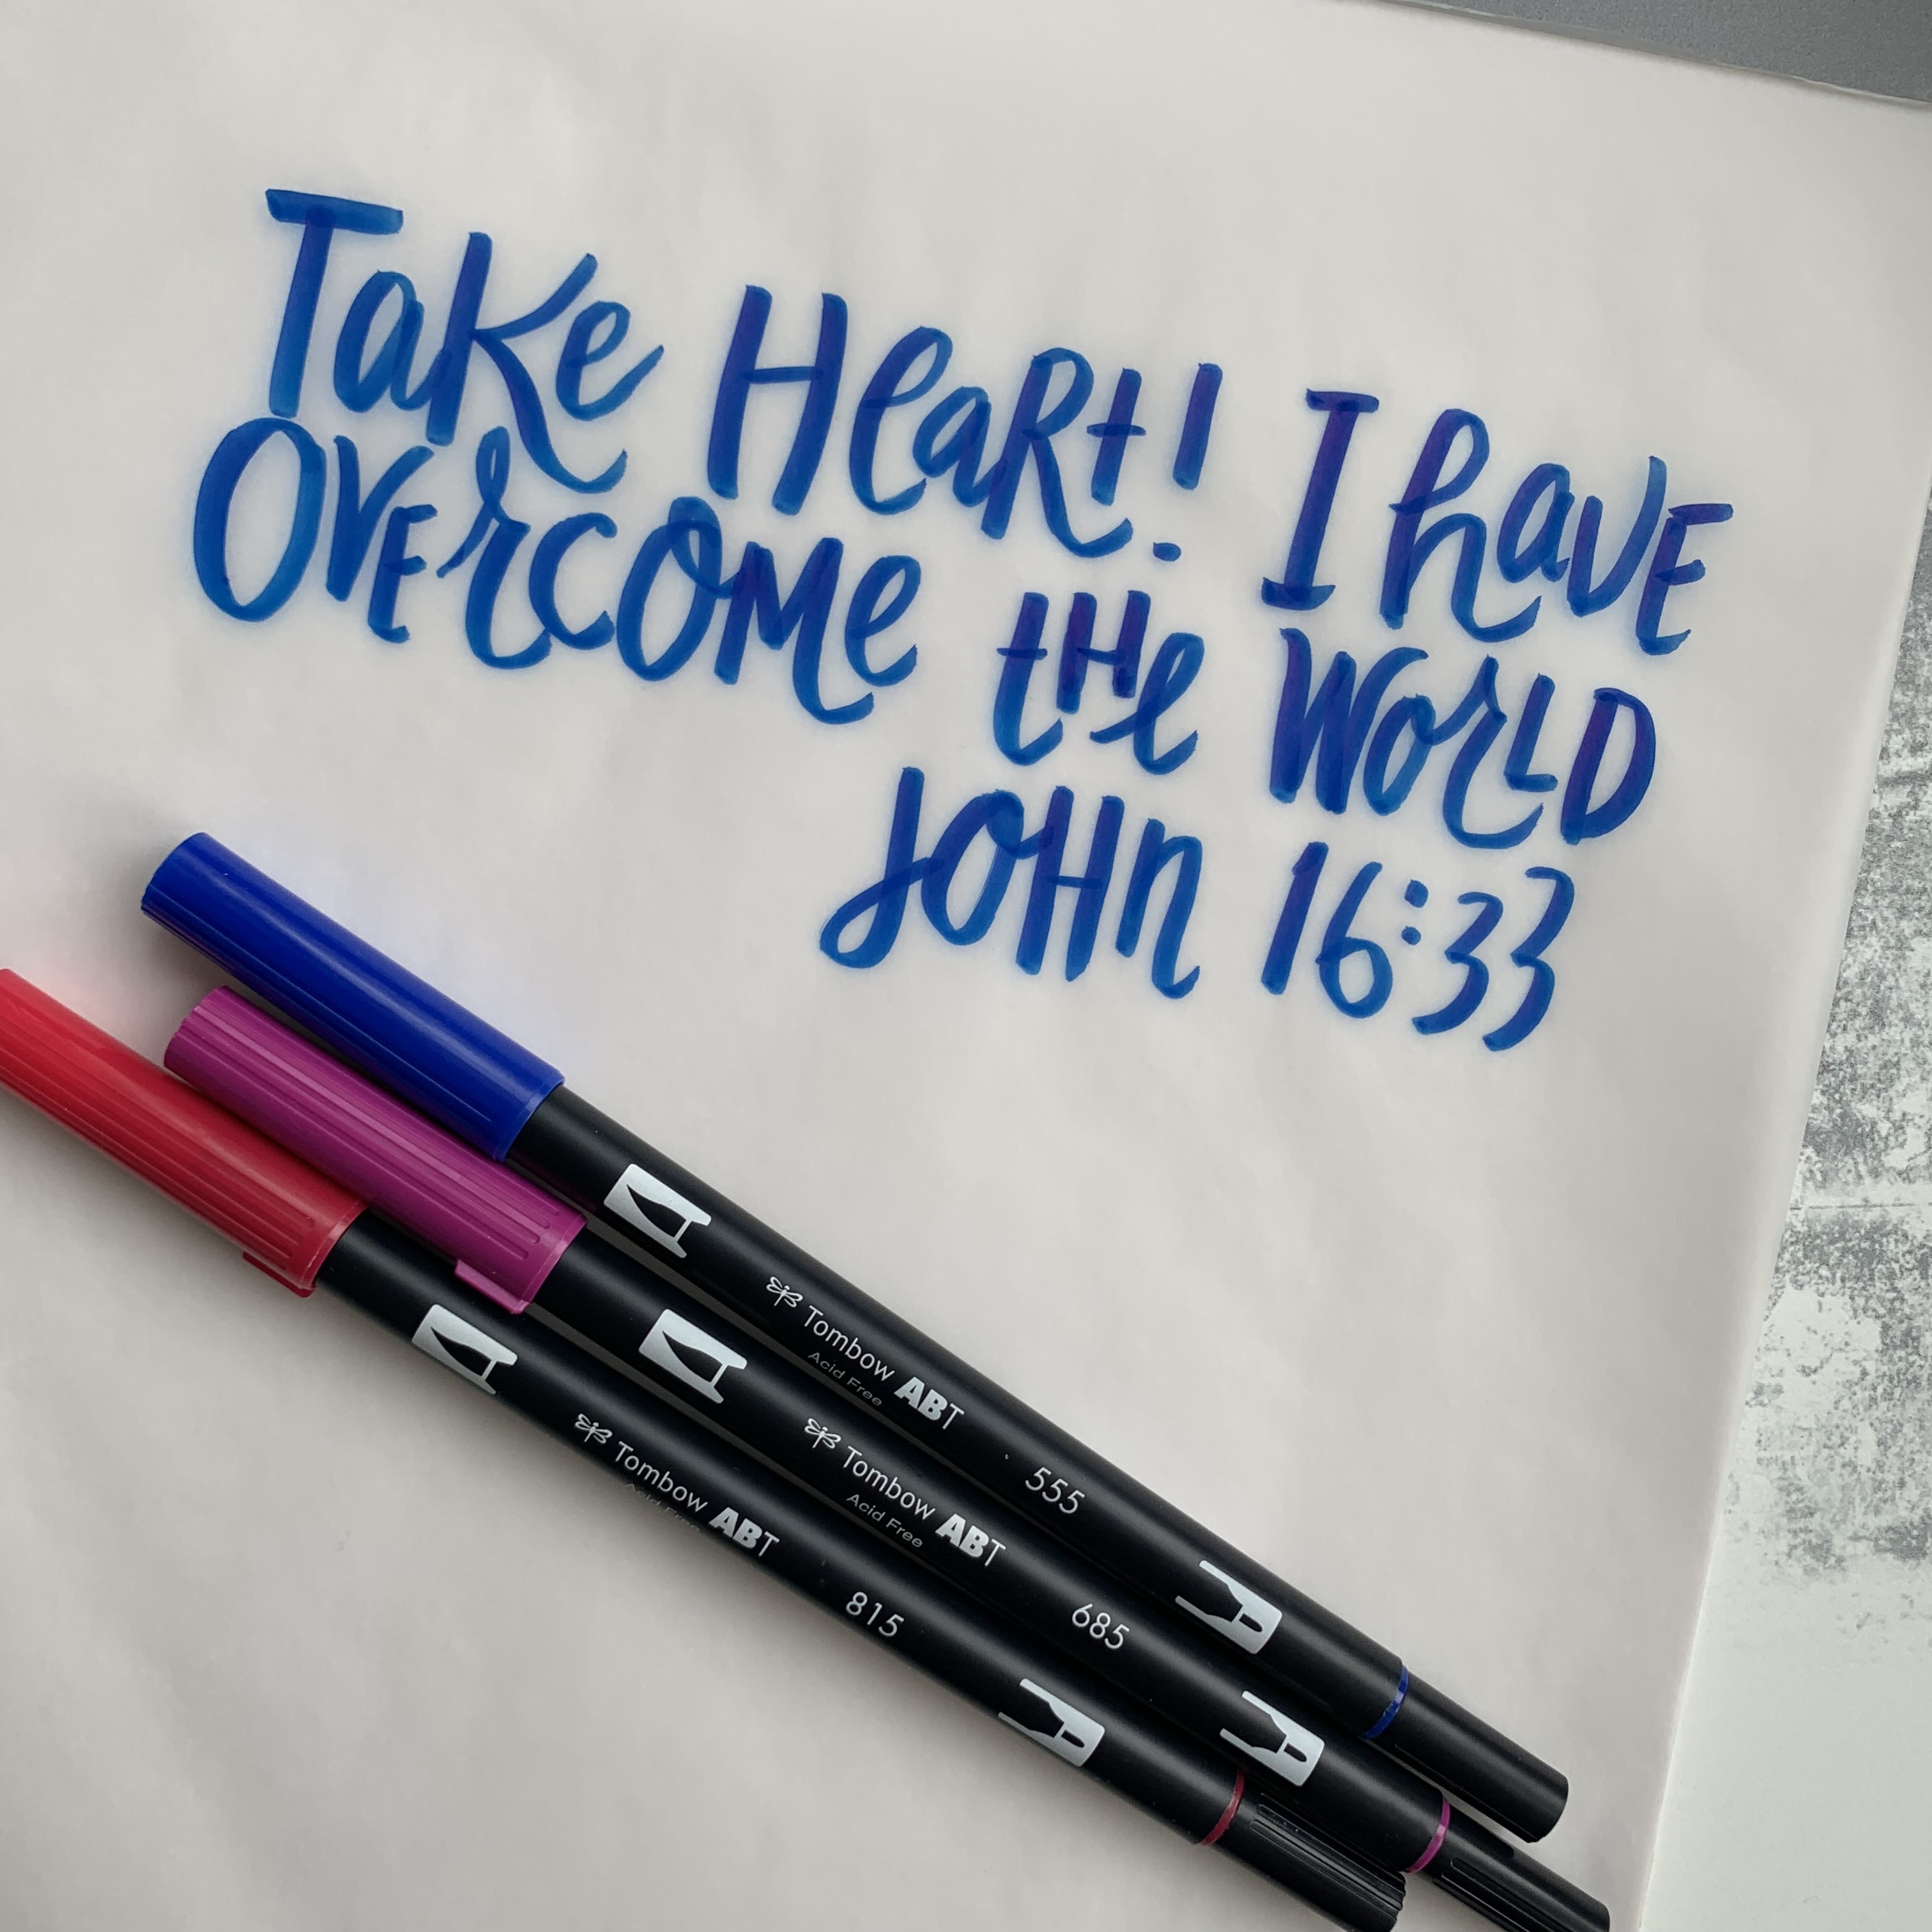 Take Heart! I have
Overcome the World
John 16:33
Tombow ABT 555
Acid Free
Tombow ABT 685
Acid Free
Tombow ABT 815
Acid Free